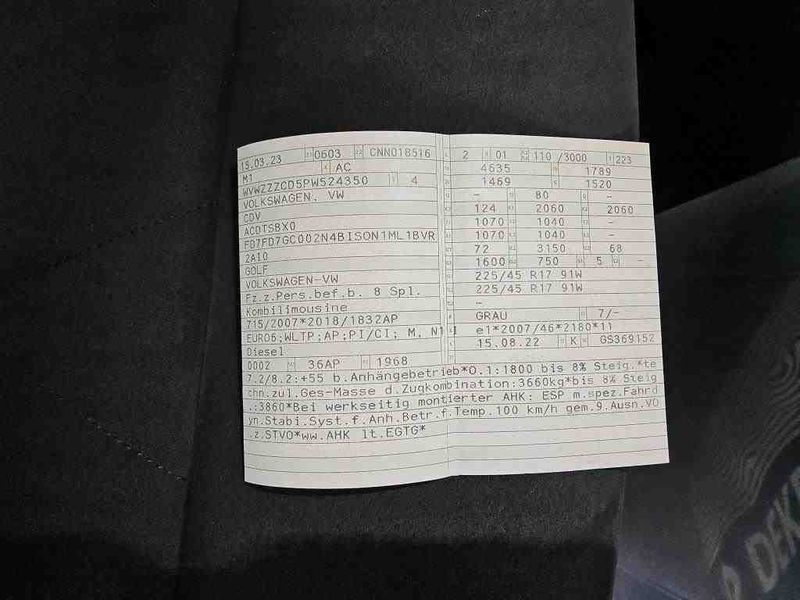 15.03.23 0603 CNN018516
M1 AC
WVWZZZCD5PW524350 4
VOLKSWAGEN, VW
CDV
ACDTSBX0
FD7FD7GC002N4BISON1ML1BVR
2A10
GOLF
VOLKSWAGEN-VW
Fz.z.Pers.bef.b. 8 Spl.
Kombilimousine
715/2007*2018/1832AP
EURO6;WLTP;AP;PI/CI; M, N1 I
Diesel
0002 36AP 1968
2 01 110 /3000 223
4635 1789
1469 1520
- 80 -
124 2060 2060
1070 1040 -
1070 1040 -
72 3150 68
1600 750 5 -
225/45 R17 91W
225/45 R17 91W
-
GRAU 7/-
e1*2007/46*2180*11
15.08.22 K GS369152
7.2/8.2:+55 b.Anhängebetrieb*O.1:1800 bis 8% Steig.*te
chn.zul.Ges-Masse d.Zugkombination:3660kg*bis 8% Steig
.:3860*Bei werkseitig montierter AHK: ESP m.spez.Fahrd
yn.Stabi.Syst.f.Anh.Betr.f.Temp.100 km/h gem.9.Ausn.VO
.z.STVO*ww.AHK lt.EGTG*